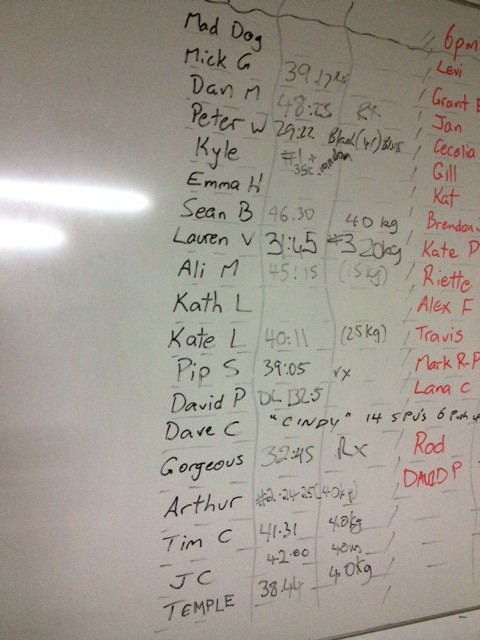 Mad Dog
Mick G 39.17
Dan M 48:23 RX
Peter W 29:22 Black
Kyle #1 + random
Emma H
Sean B 46.30 40 kg
Lauren V 31:45 #3 20kg
Ali M 45:15 (15kg)
Kath L
Kate L 40:11 (25kg)
Pip S 39:05 rx
David P DL 132.5
Dave C "CINDY" 14 5 PU's 6 Push
Gorgeous 32:45 Rx
Arthur #2. 24.25 (40kg)
Tim C 41.31 40kg
JC 42.00 40kg
TEMPLE 38.44 40kg
6pm
Levi
Grant
Jan
Cecelia
Gill
Kat
Brendan
Kate P
Riette
Alex F
Travis
Mark R-P
Lana C
Rod
DAVID P